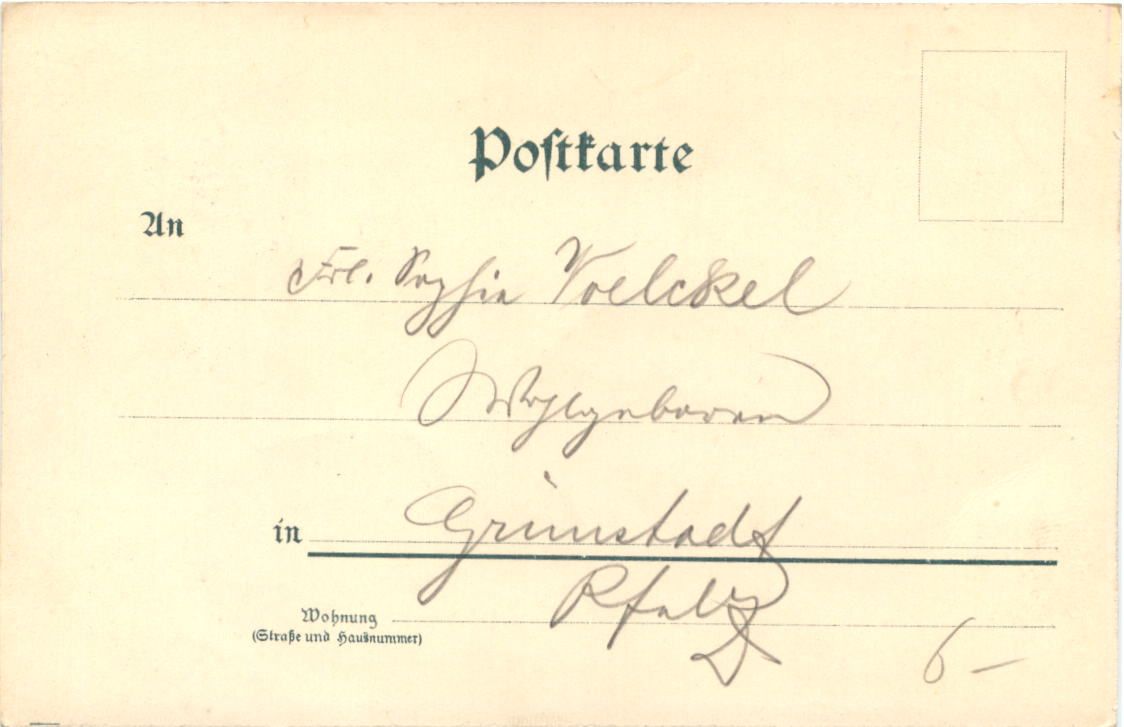 Postkarte
An
Frl. Sophie Voelckel
Wohlgeboren
in Grünstadt
Pfalz
Wohnung
(Straße und Hausnummer)
6 –